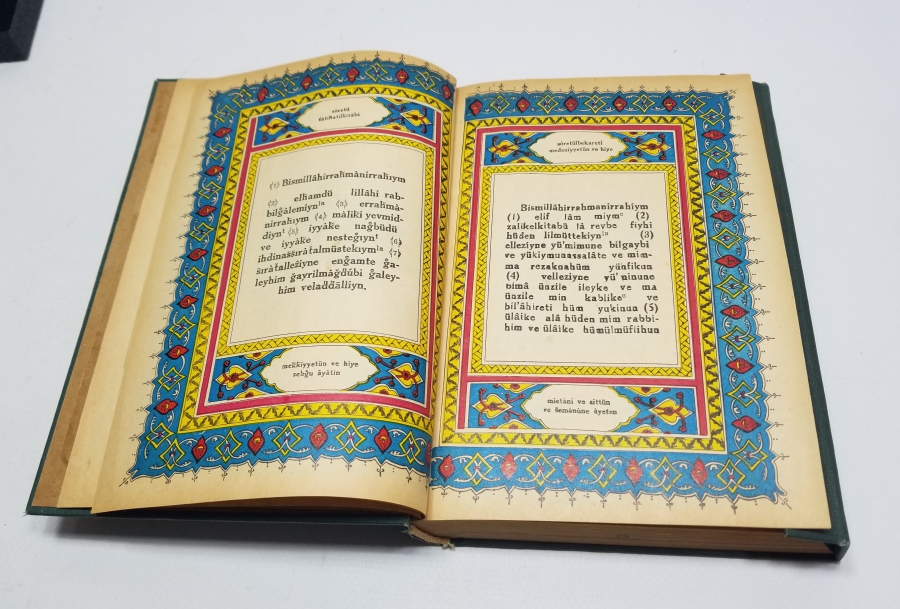 sûretü
fâtihatilkitâbi
(1) Bismillâhirrahmânirrahıym
(2) elhamdü lillâhi rab-
bilğâlemiyn ̛ ˡᵃ (3) errahmâ-
nirrahıym (4) mâliki yevmid-
diyn ᵗ (5) iyyâke nağbüdü
ve iyyâke nesteğıyn ᵗ (6)
ihdinassırâtalmüstekıym ˡᵃ (7)
sırâtalleziyne enğamte ğa-
leyhim ğayrilmağdûbi ğaley-
him veladdâlliyn.
mekkiyyetün ve hiye
sebğu âyâtin
sûretülbekareti
medeniyyetün ve hiye
Bismillâhirrahmanirrahîym
(1) elif lâm miym° (2)
zalikelkitabü lâ reybe fiyhi
hüden lilmüttekiyn ˡᵃ (3)
elleziyne yü'mimune bilgaybi
ve yükiymunassalâte ve mim-
ma rezaknahüm yünfikun
(4) velleziyne yü'minune
bimâ ünzile ileyke ve ma
ünzile min kablike° ve
bil'âhireti hüm yukinun (5)
ülâike alâ hüden mim rabbi-
him ve ülâike hümülmüflihun
mietâni ve sittün
ve semânûne âyeten